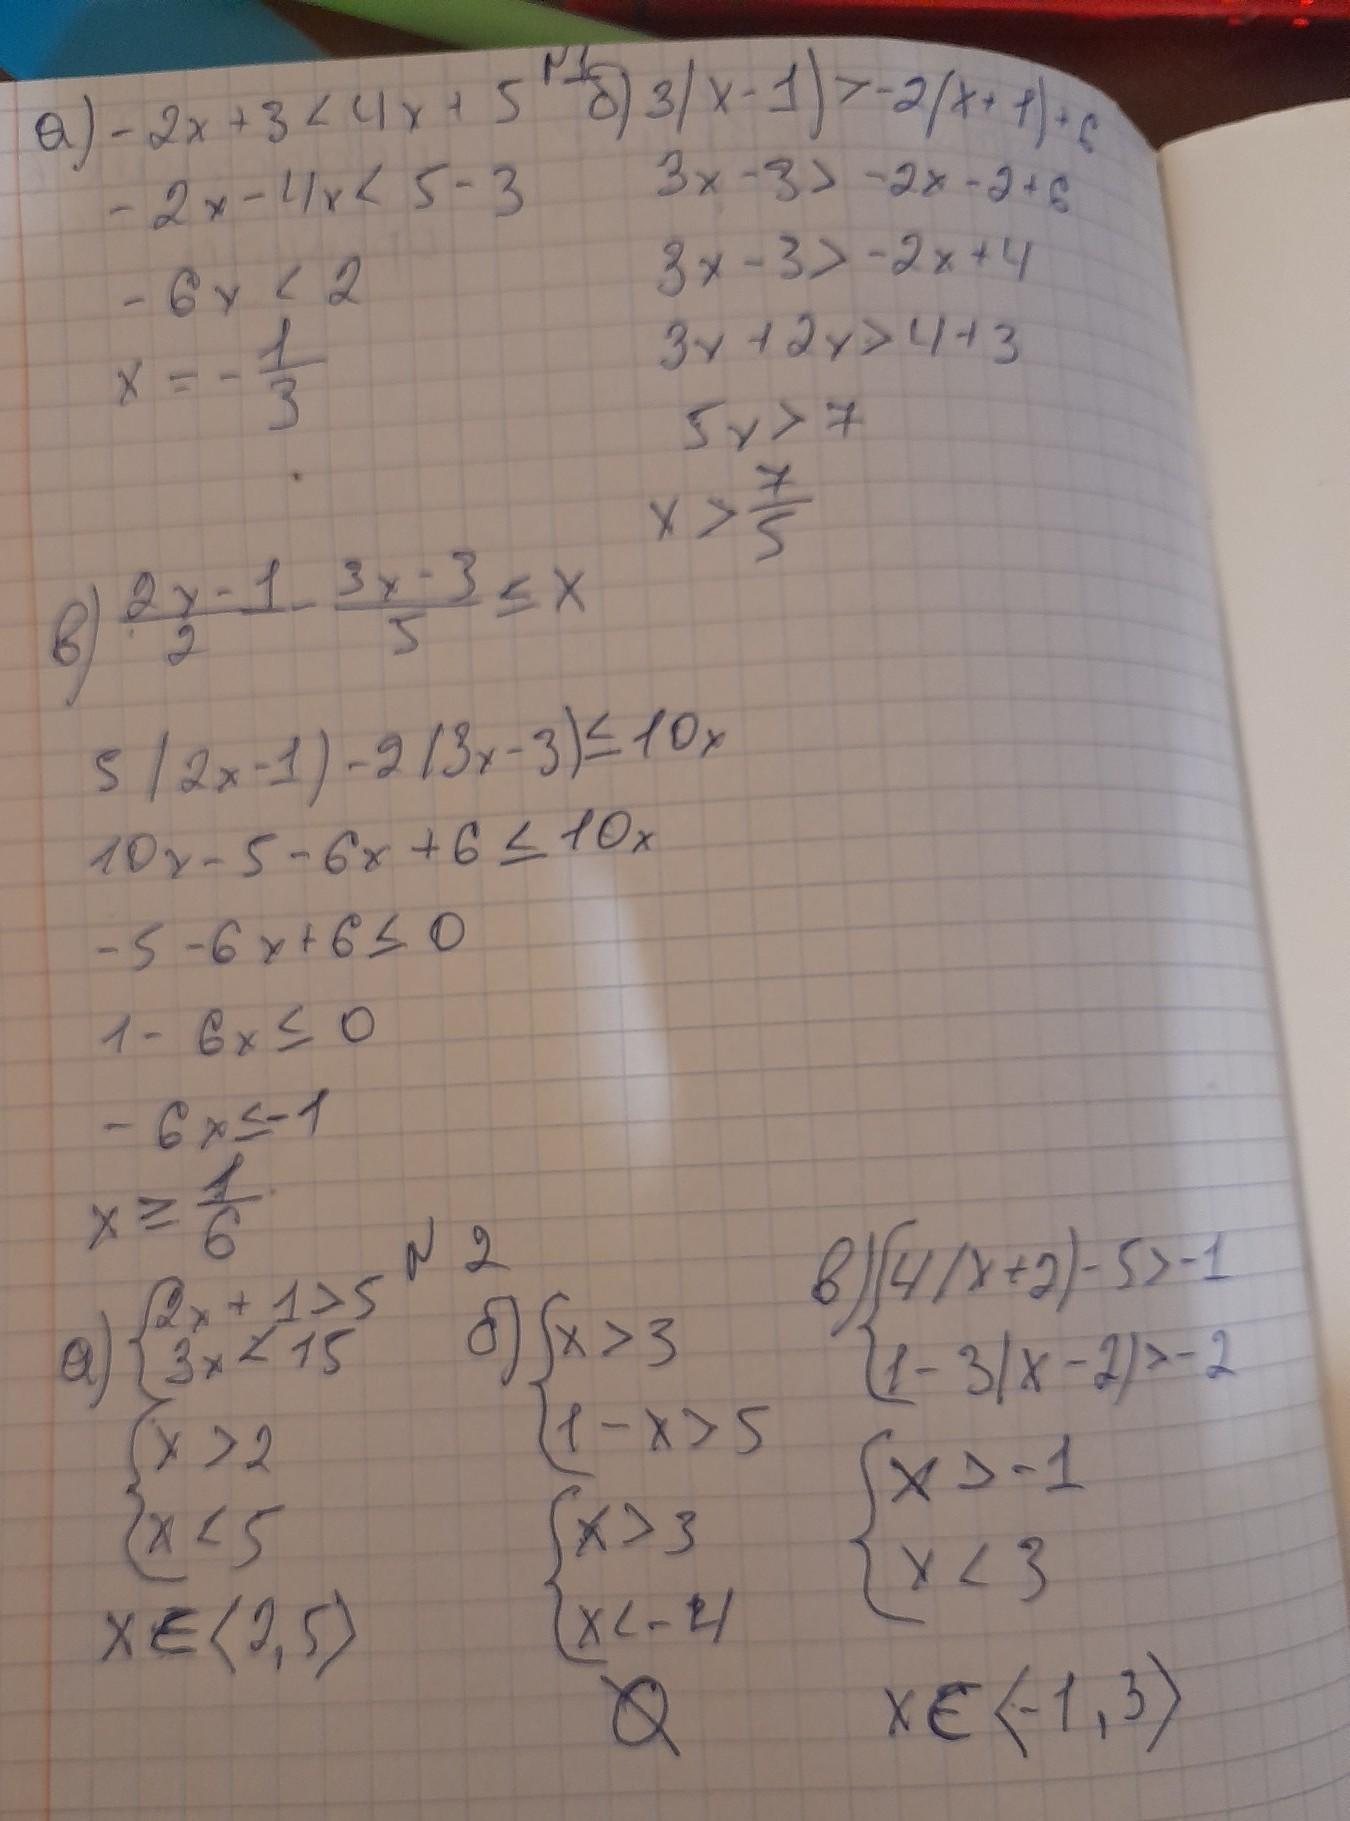 N1
а) -2x + 3 < 4x + 5
-2x - 4x < 5 - 3
-6x < 2
x = -1/3
б) 3(x - 1) > -2(x + 1) + 6
3x - 3 > -2x - 2 + 6
3x - 3 > -2x + 4
3x + 2x > 4 + 3
5x > 7
x > 7/5
в) (2x - 1)/2 - (3x - 3)/5 ≤ x
5(2x - 1) - 2(3x - 3) ≤ 10x
10x - 5 - 6x + 6 ≤ 10x
-5 - 6x + 6 ≤ 0
1 - 6x ≤ 0
-6x ≤ -1
x ≥ 1/6
N 2
а) { 2x + 1 > 5
3x < 15
{ x > 2
x < 5
x ∈ ⟨2, 5⟩
б) { x > 3
1 - x > 5
{ x > 3
x < -4
∅
в) { 4(x + 2) - 5 > -1
1 - 3(x - 2) > -2
{ x > -1
x < 3
x ∈ ⟨-1, 3⟩